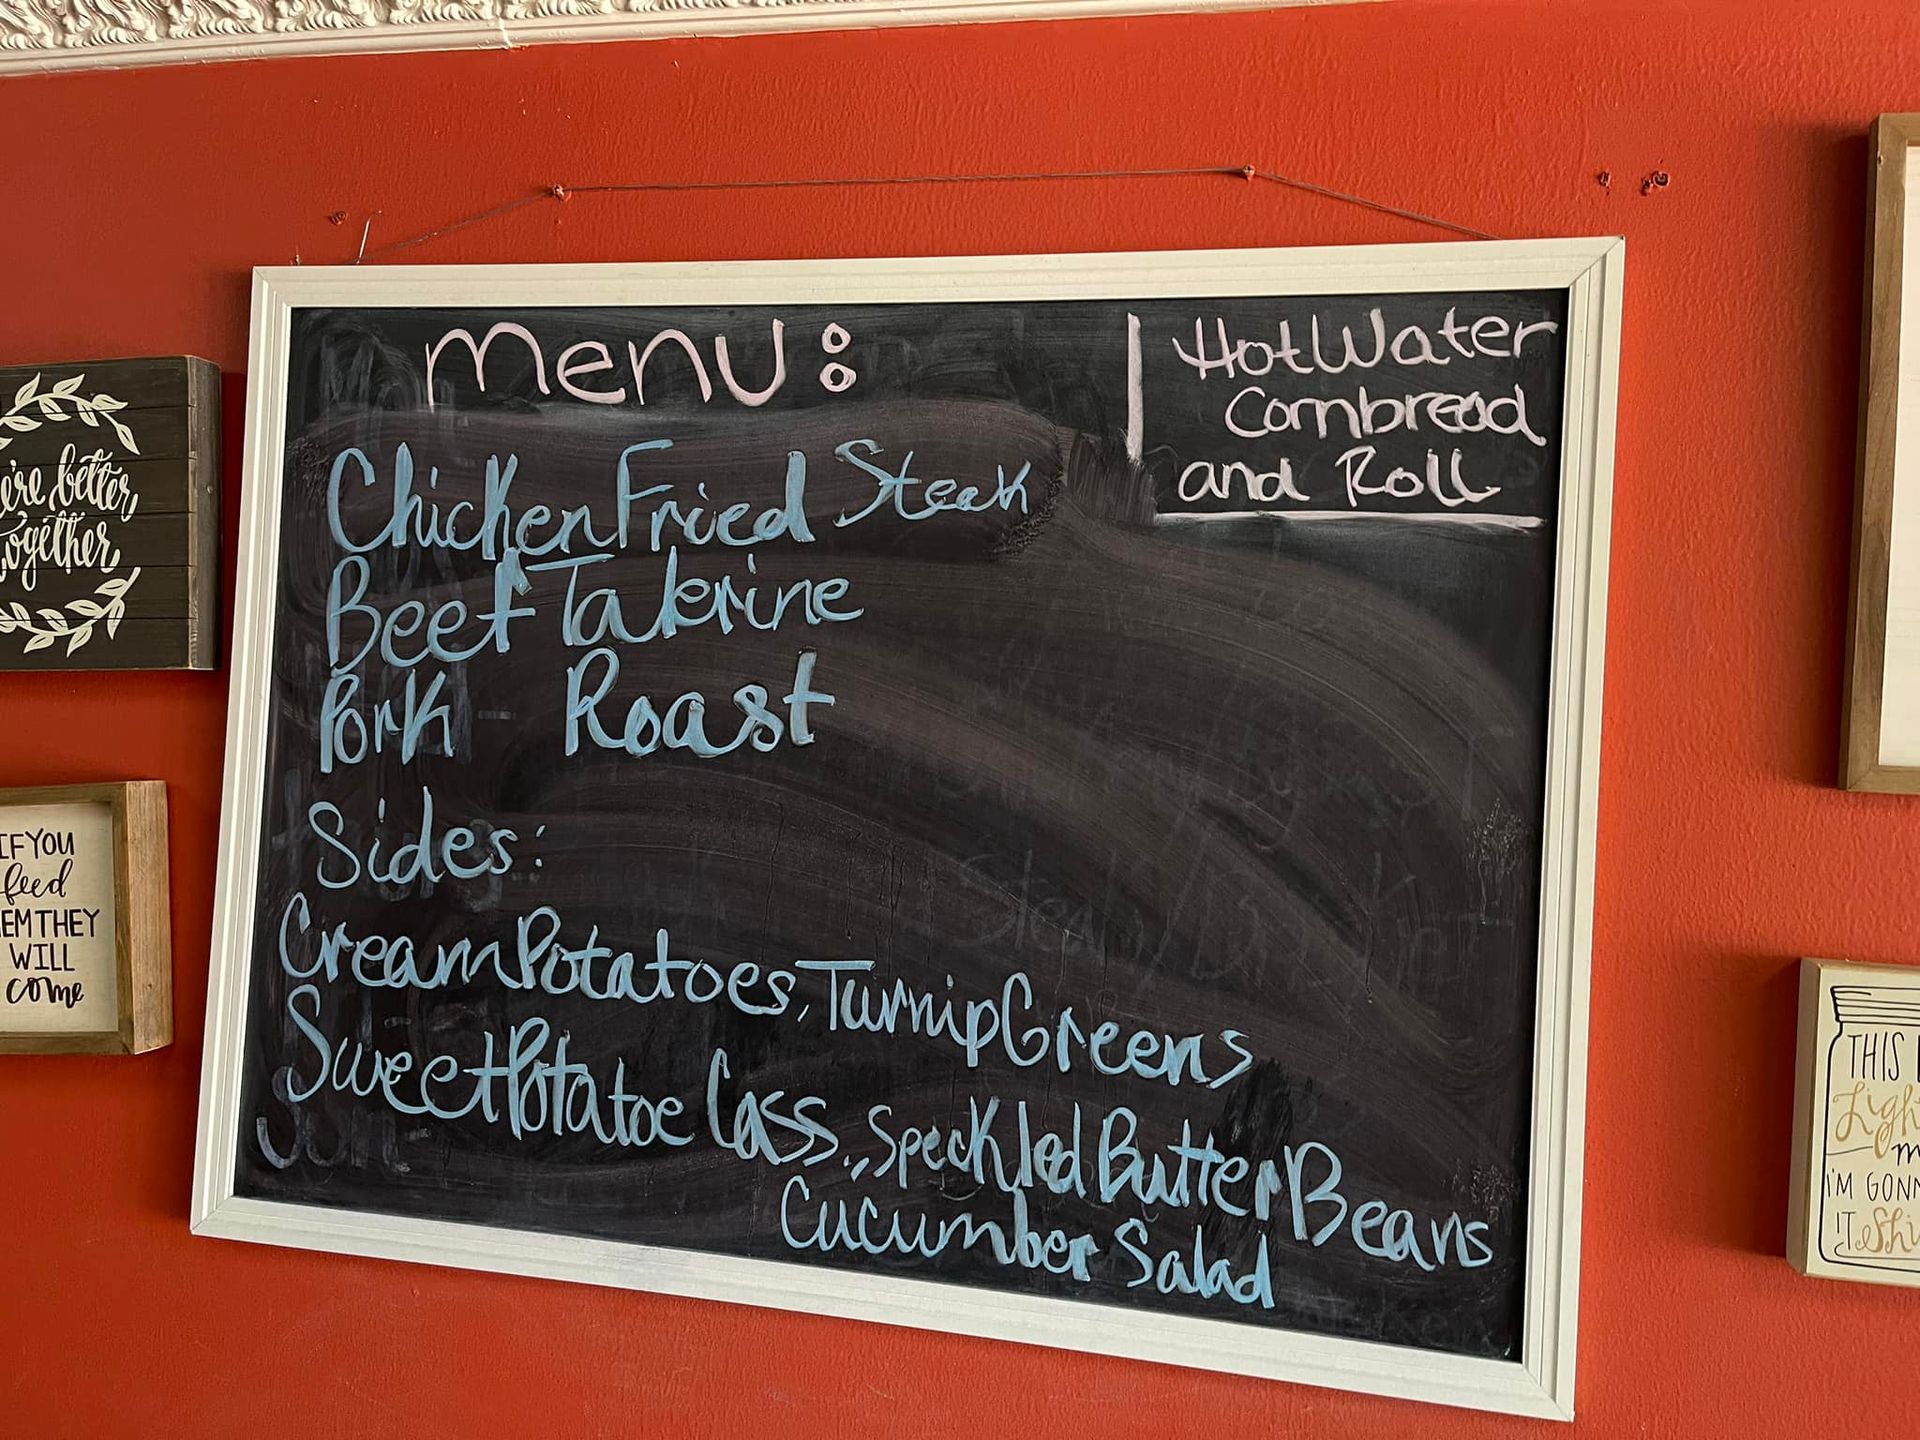 menu:
Hot Water
Cornbread
and Roll
Chicken Fried Steak
Beef Takerine
Pork Roast
Sides:
Cream Potatoes, Turnip Greens
Sweet Potatoe Cass., Speckled Butter Beans
Cucumber Salad
better
together
IF YOU
feed
THEY
WILL
come
THIS
I'M
IT